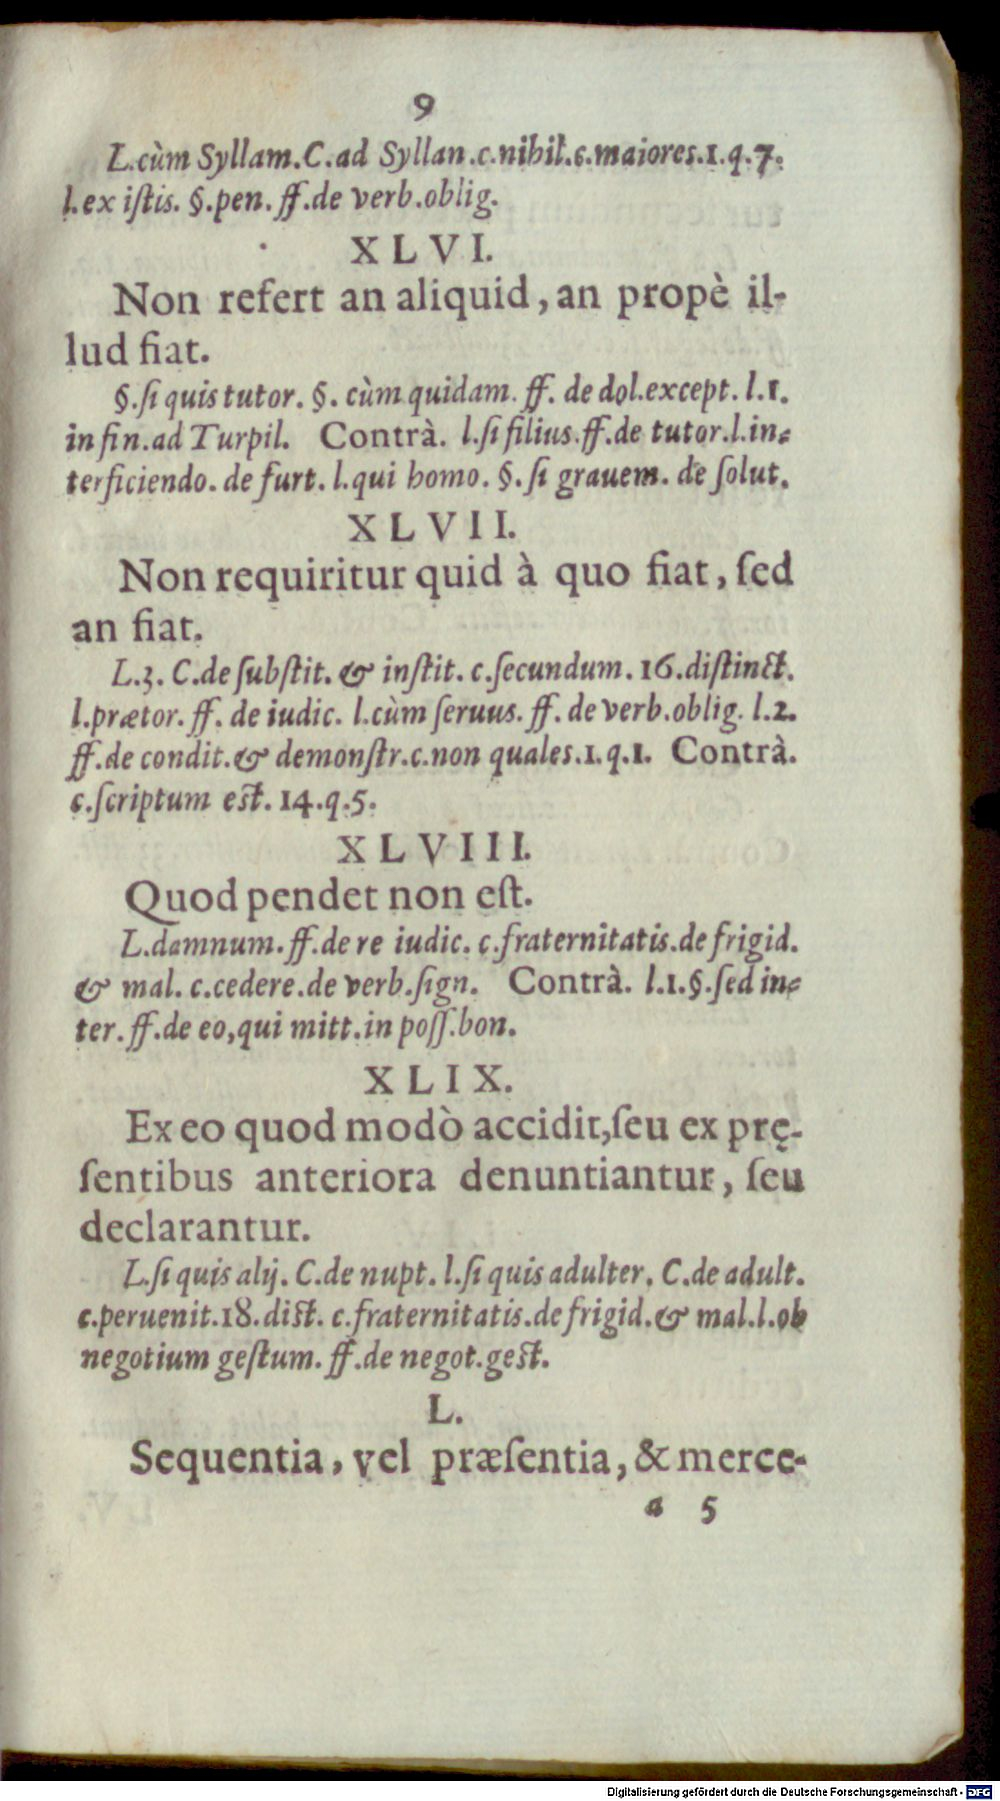 9
L.cùm Syllam.C.ad Syllan.c.nihil.c.maiores.1.q.7.
l.ex iſtis. §.pen. ff.de verb.oblig.
XLVI.
Non refert an aliquid, an propè il-
lud fiat.
§.ſi quis tutor. §. cùm quidam. ff. de dol.except. l.1.
in fin.ad Turpil. Contrà. l.ſi filius.ff.de tutor.l.in-
terficiendo. de furt. l.qui homo. §.ſi grauem. de ſolut.
XLVII.
Non requiritur quid à quo fiat, ſed
an fiat.
L.3. C.de ſubſtit. & inſtit. c.ſecundum. 16.diſtinct.
l.prætor. ff. de iudic. l.cùm ſeruus. ff. de verb.oblig. l.2.
ff.de condit.& demonſtr.c.non quales.1.q.1. Contrà.
c.ſcriptum eſt. 14.q.5.
XLVIII.
Quod pendet non eſt.
L.damnum.ff.de re iudic. c.fraternitatis.de frigid.
& mal. c.cedere.de verb.ſign. Contrà. l.1.§.ſed in-
ter.ff.de eo,qui mitt.in poſſ.bon.
XLIX.
Ex eo quod modò accidit,ſeu ex prę-
ſentibus anteriora denuntiantur, ſeu
declarantur.
L.ſi quis alij. C.de nupt. l.ſi quis adulter. C.de adult.
c.peruenit.18.diſt. c.fraternitatis.de frigid.& mal.l.ob
negotium geſtum. ff.de negot.geſt.
L.
Sequentia, vel præſentia, & merce-
a 5
Digitalisierung gefördert durch die Deutsche Forschungsgemeinschaft - DFG